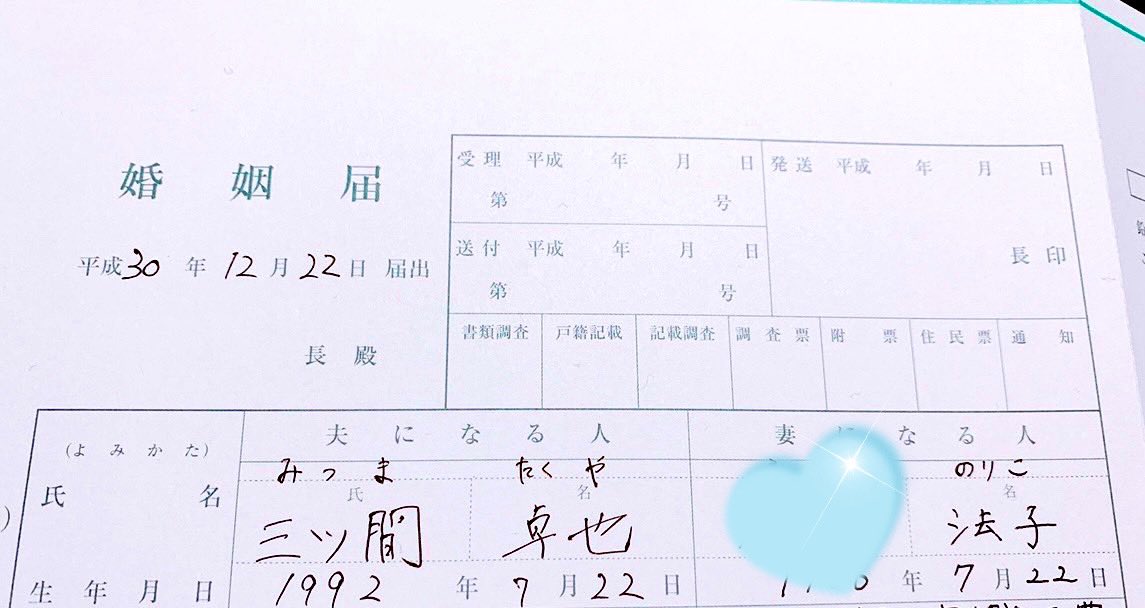 婚姻届
平成30年12月22日 届出
長 殿
受理 平成 年 月 日
第 号
発送 平成 年 月 日
長印
送付 平成 年 月 日
第 号
書類調査 戸籍記載 記載調査 調査票 附票 住民票 通知
夫になる人 妻になる人
(よみかた) みつま たくや のりこ
氏 名 氏 名 名
三ツ間 卓也 法子
生年月日 1992年7月22日 年7月22日